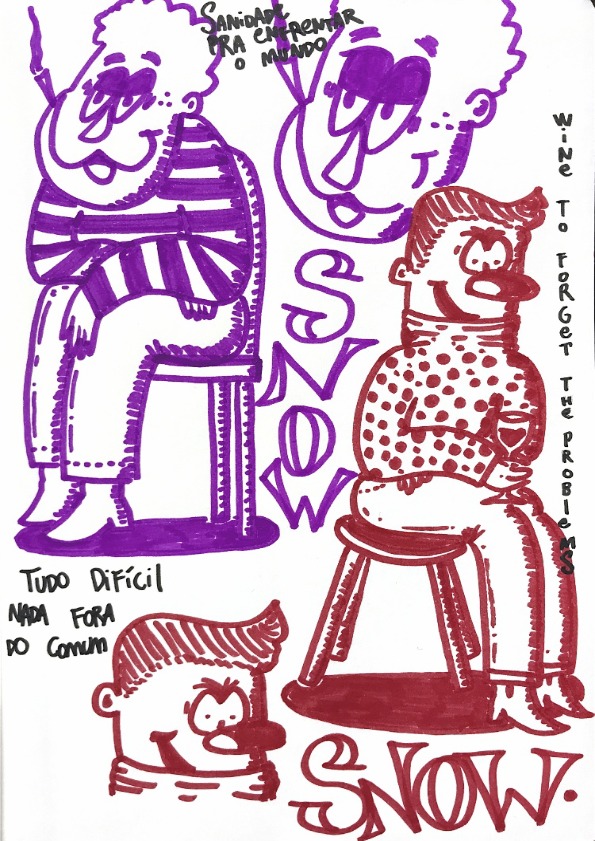 SANiDADE
PRA ENFRENTAR
O MUNDO
WiNE To FoRGeT THe PRoBleMS
SNOW
TUDO DiFÍCil
NADA FORA
DO Comum
SNOW.